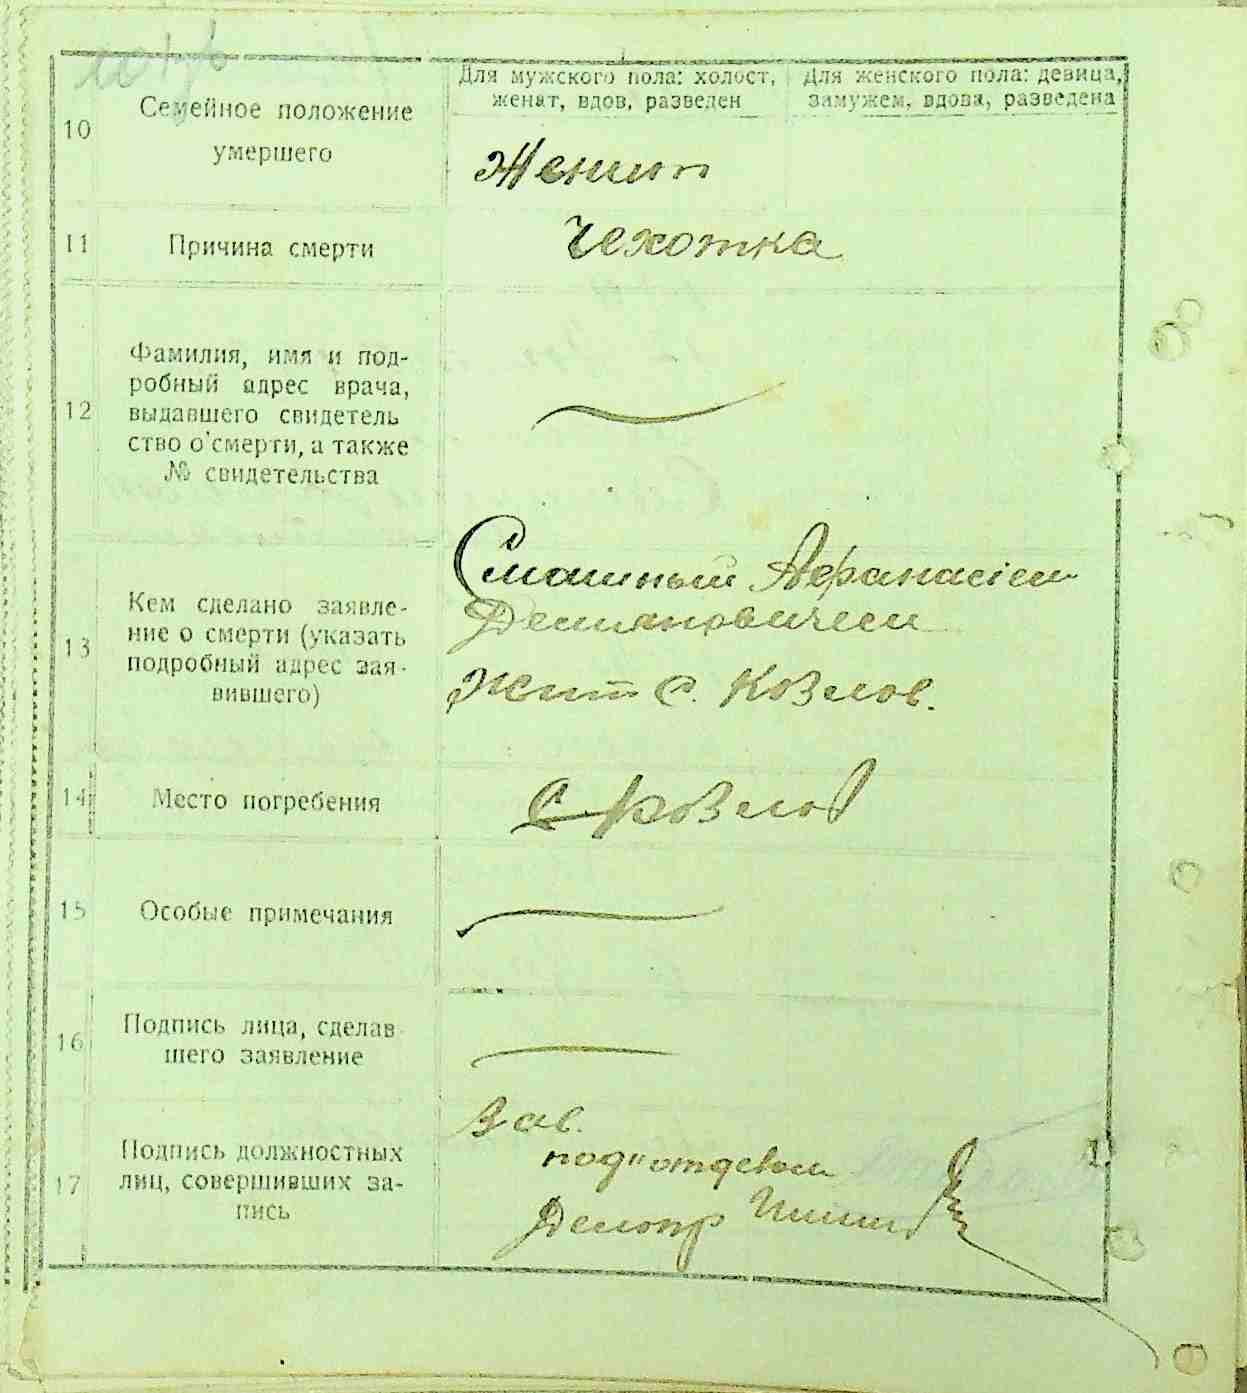 Для мужского пола: холост, женат, вдов, разведен
Для женского пола: девица, замужем, вдова, разведена
10
Семейное положение
умершего
Женит
11
Причина смерти
Чехотка
12
Фамилия, имя и под-
робный адрес врача,
выдавшего свидетель
ство о смерти, а также
№ свидетельства
13
Кем сделано заявле-
ние о смерти (указать
подробный адрес зая-
вившего)
Афанасием
Демяновичем
жит с. Козлов.
14
Место погребения
С Козлов
15
Особые примечания
16
Подпись лица, сделав
шего заявление
17
Подпись должностных
лиц, совершивших за-
пись
Зав.
под"отделом
Делопр